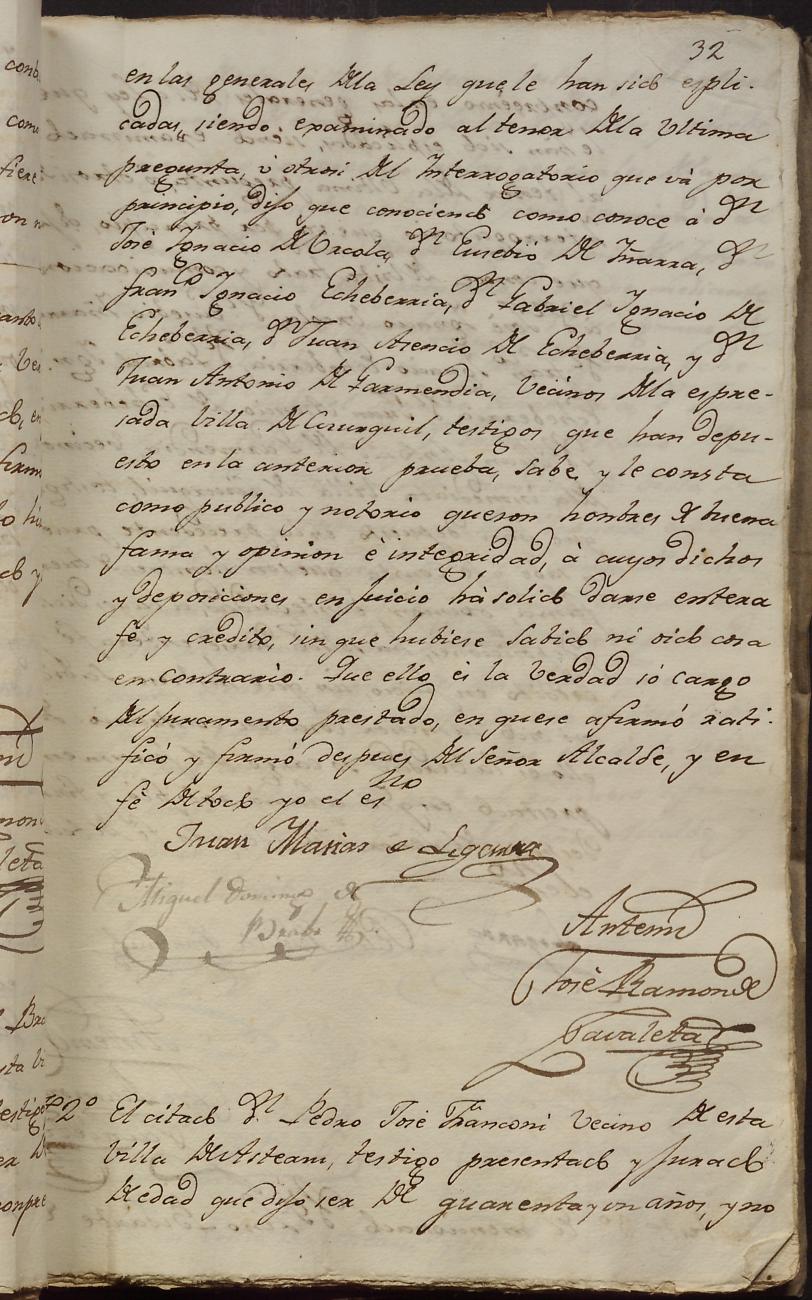 32
en las generales dela Ley que le han sido espli-
cadas, siendo examinado al tenor dela ultima
pregunta, ù otrosi del Interrogatorio que và por
principio, dijo que conociendo como conoce à Dn
José Ignacio de Urcola, Dn Eusebio de Inarra, Dn
Franco Ignacio Echeberria, Dn Gabriel Ignacio de
Echeberria, Dn Juan Asencio de Echeberria, y Dn
Juan Antonio de Garmendia, Vecinos dela espre-
sada Villa de Urruguil, testigos que han depu-
esto en la anterior prueba, sabe y le consta
como publico y notorio queson hombres de buena
fama y opinion è integridad, à cuyos dichos
y deposiciones en Juicio hà solido darse entera
fè y credito, sin que hubiese Sabido ni oido cosa
en contrario. Que ello es la Verdad só cargo
del Juramento prestado, en quese afirmó rati-
ficó y firmó despues del Señor Alcalde, y en
fè de todo yo el esno
Juan Matias de Legarra
Miguel Domingo de
Antemi
José Ramon de
Zavaleta
to 2o El citado Dn Pedro José Franconi Vecino de esta
Villa de Asteasu, testigo presentado y Jurado
de edad que dijo ser de quarenta y un años, y no